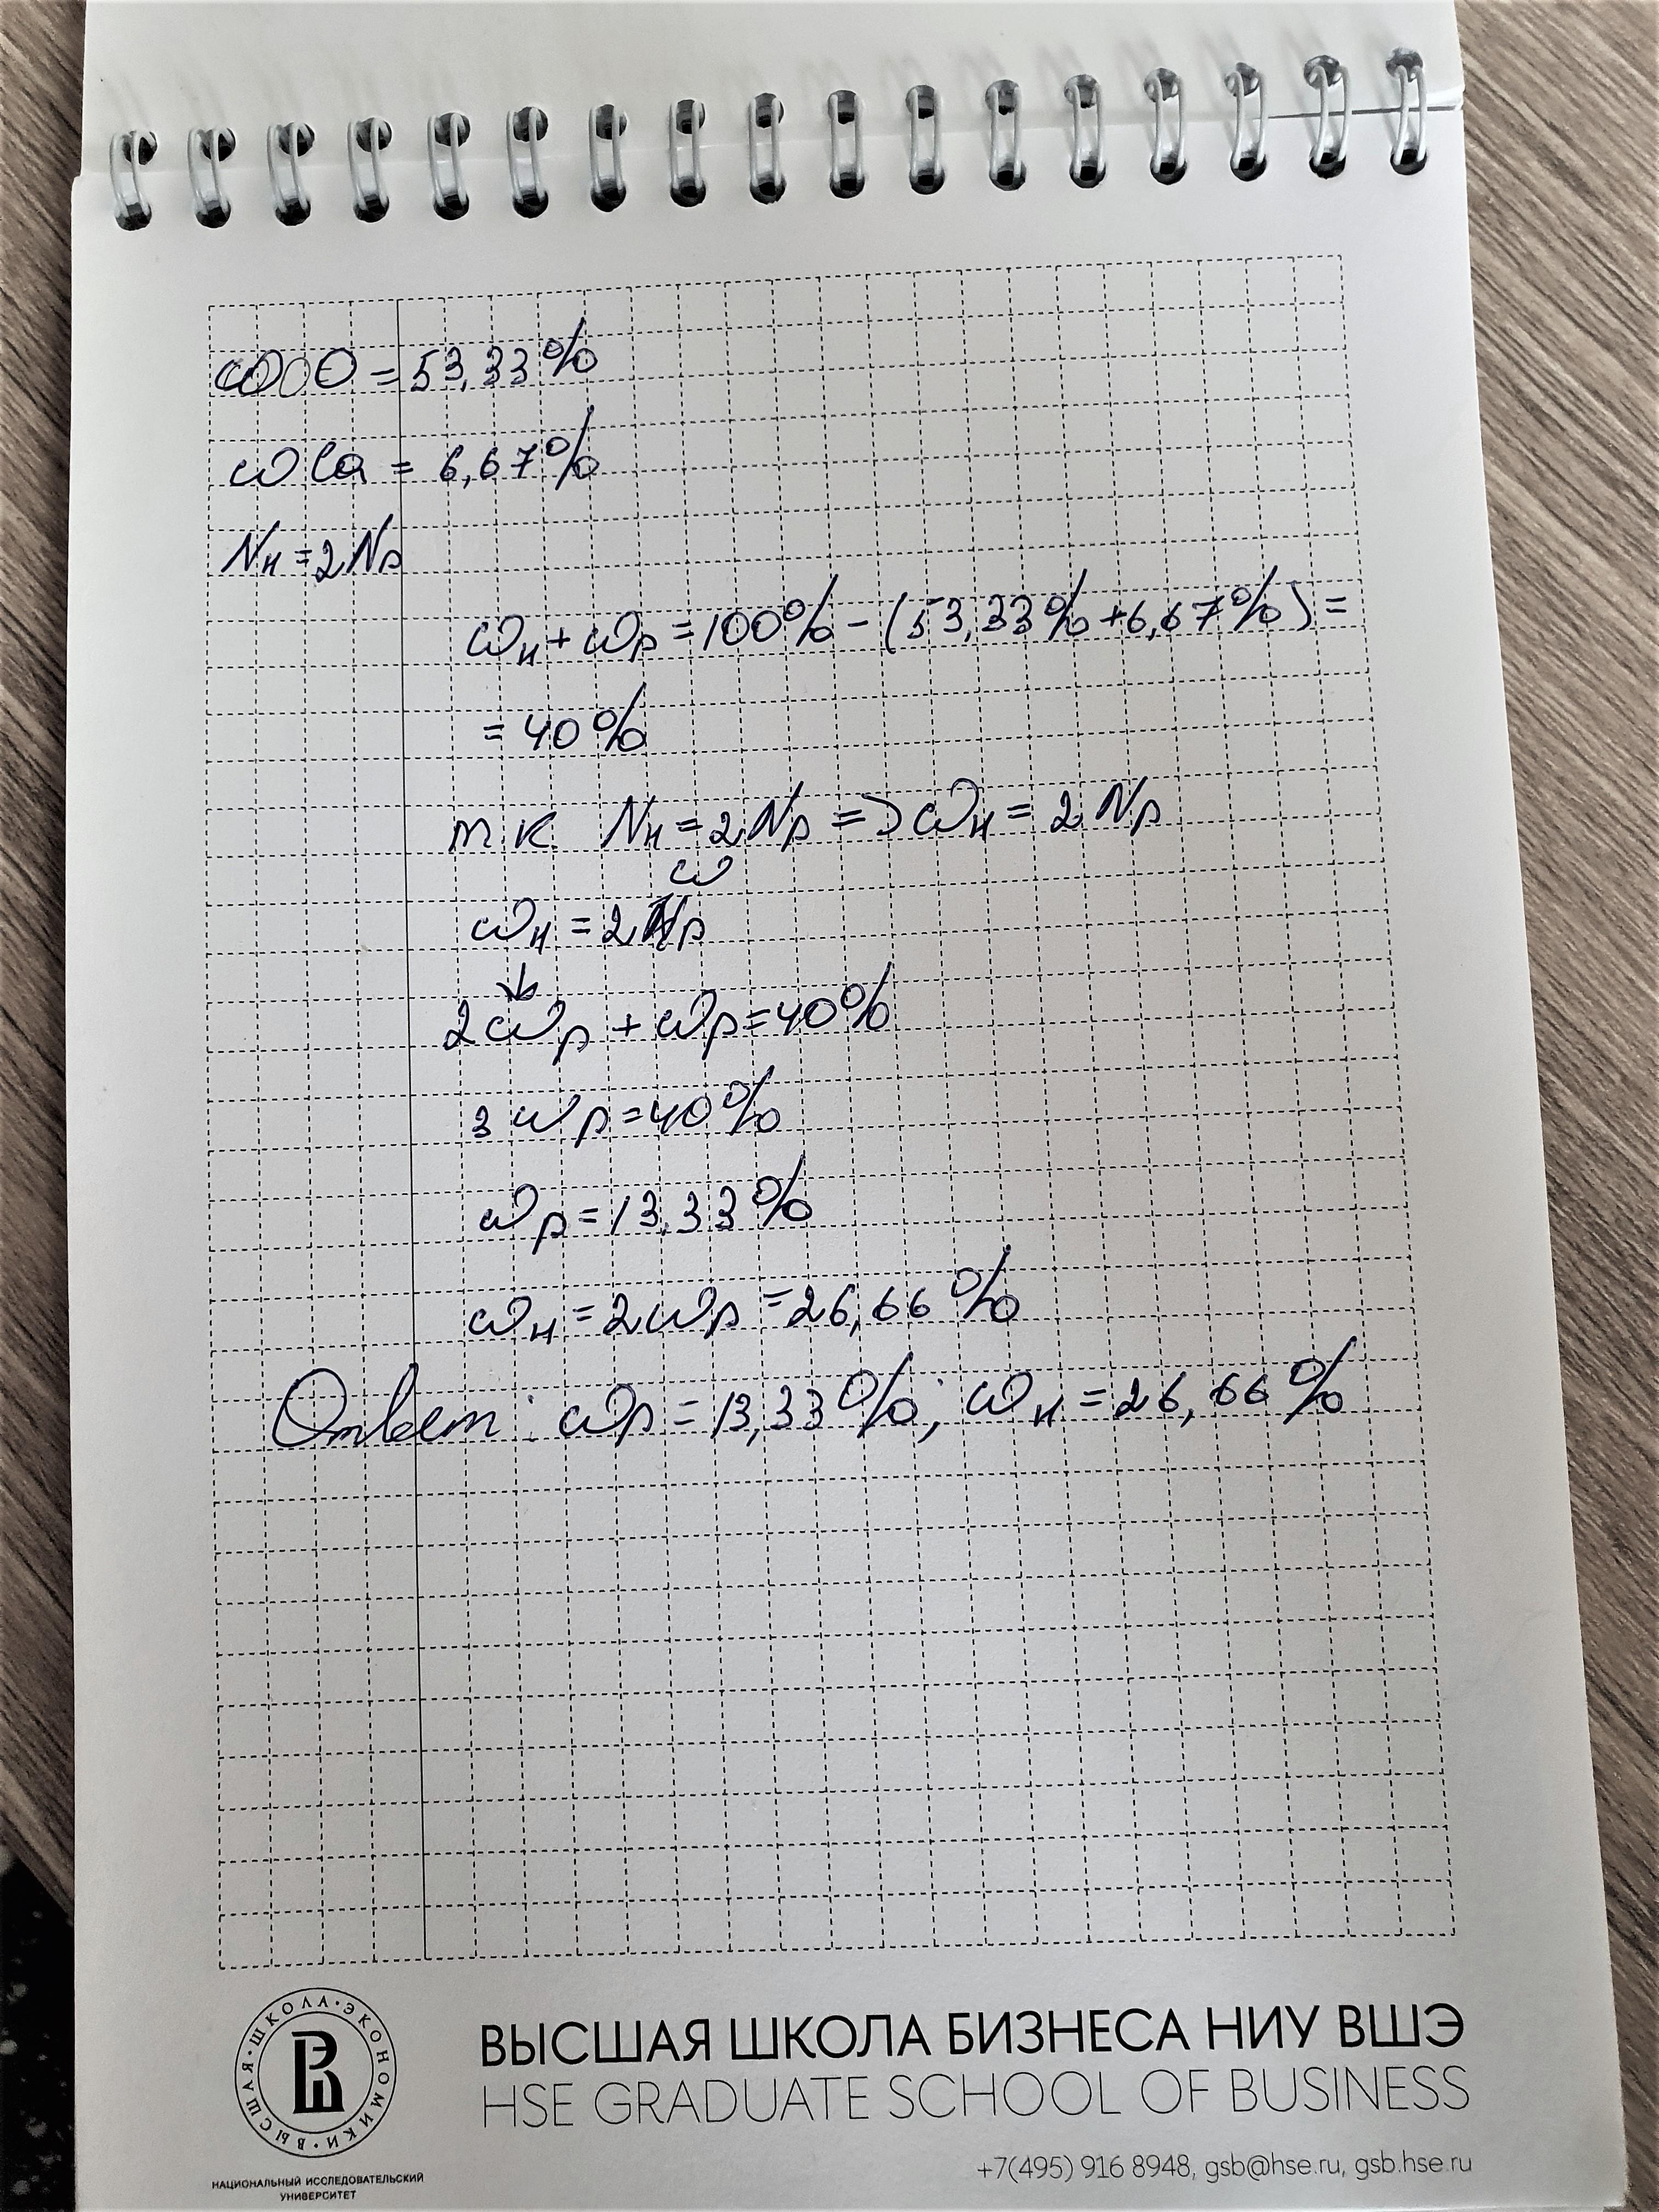 ω O = 53,33%
ω Ca = 6,67%
Nн = 2Np
ωн + ωp = 100% - (53,33% + 6,67%) =
= 40%
т.к. Nн = 2Np => ωн = 2Np
ω
ωн = 2 p
2ωp + ωp = 40%
3ωp = 40%
ωp = 13,33%
ωн = 2ωp = 26,66%
Ответ: ωp = 13,33%; ωн = 26,66%
ВЫСШАЯ ШКОЛА ЭКОНОМИКИ
НАЦИОНАЛЬНЫЙ ИССЛЕДОВАТЕЛЬСКИЙ
УНИВЕРСИТЕТ
ВЫСШАЯ ШКОЛА БИЗНЕСА НИУ ВШЭ
HSE GRADUATE SCHOOL OF BUSINESS
+7(495) 916 8948, gsb@hse.ru, gsb.hse.ru